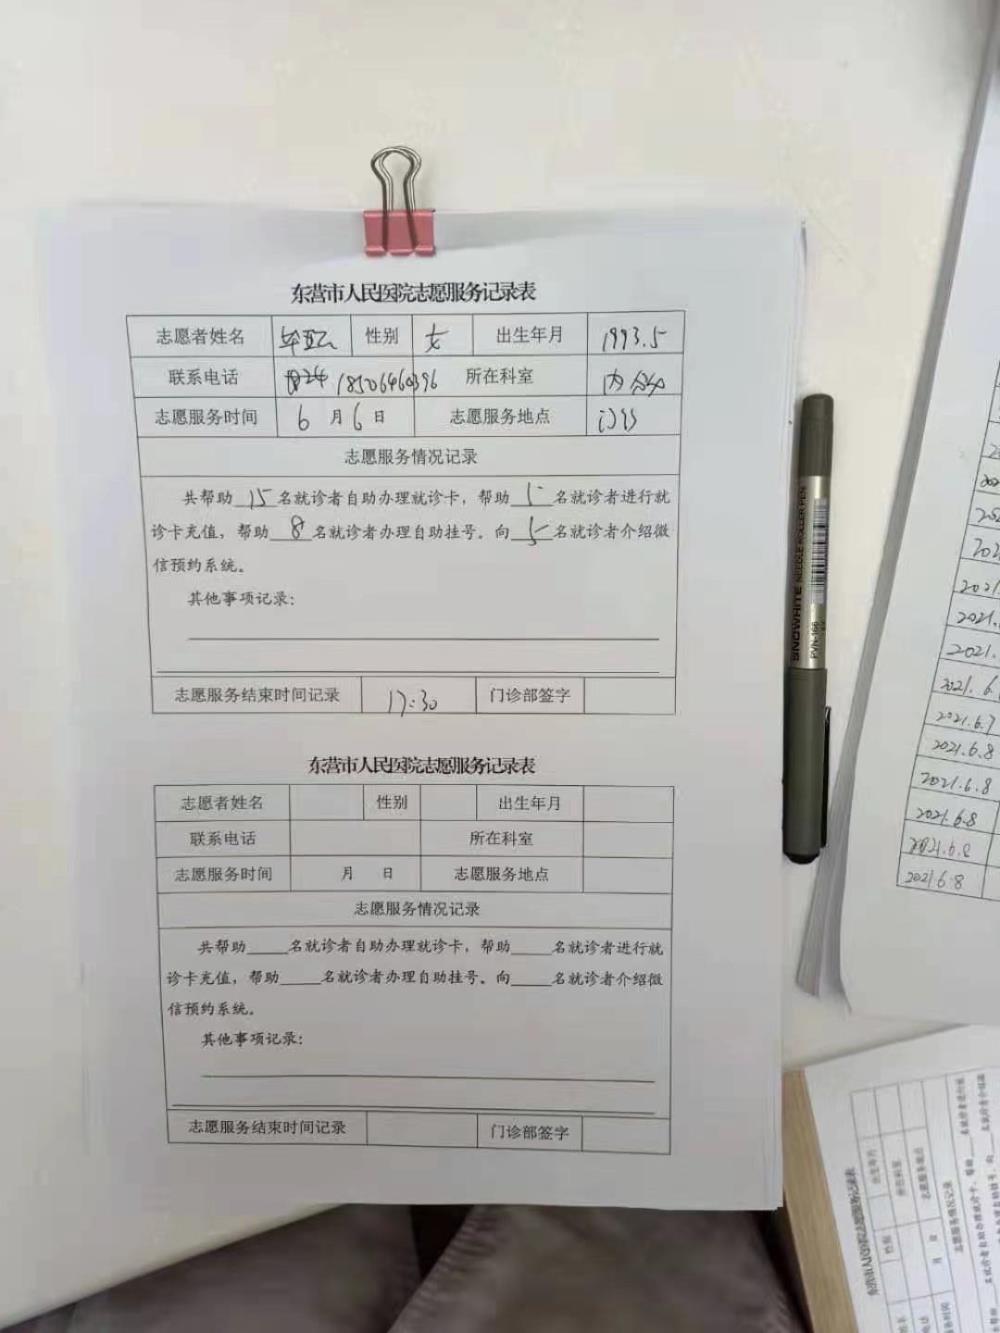 东营市人民医院志愿服务记录表
志愿者姓名 性别 女 出生年月 1993.5
联系电话 18506460396 所在科室 内分
志愿服务时间 6 月 6 日 志愿服务地点 门诊
志愿服务情况记录
共帮助 15 名就诊者自助办理就诊卡，帮助 名就诊者进行就
诊卡充值，帮助 8 名就诊者办理自助挂号。向 5 名就诊者介绍微
信预约系统。
其他事项记录：
志愿服务结束时间记录 17:30 门诊部签字
东营市人民医院志愿服务记录表
志愿者姓名 性别 出生年月
联系电话 所在科室
志愿服务时间 月 日 志愿服务地点
志愿服务情况记录
共帮助____名就诊者自助办理就诊卡，帮助____名就诊者进行就
诊卡充值，帮助____名就诊者办理自助挂号。向____名就诊者介绍微
信预约系统。
其他事项记录：
志愿服务结束时间记录 门诊部签字
SNOWHITE NEEDLE ROLLER PEN
PVN-166
2021.
2021.
2021.
2021. 6.
2021.6.7
2021.6.8
2021.6.8
2021.6.8
2021.6.8
2021.6.8
东营市人民医院志愿服务记录表
性别 出生年月
所在科室
月 日 志愿服务地点
志愿服务情况记录